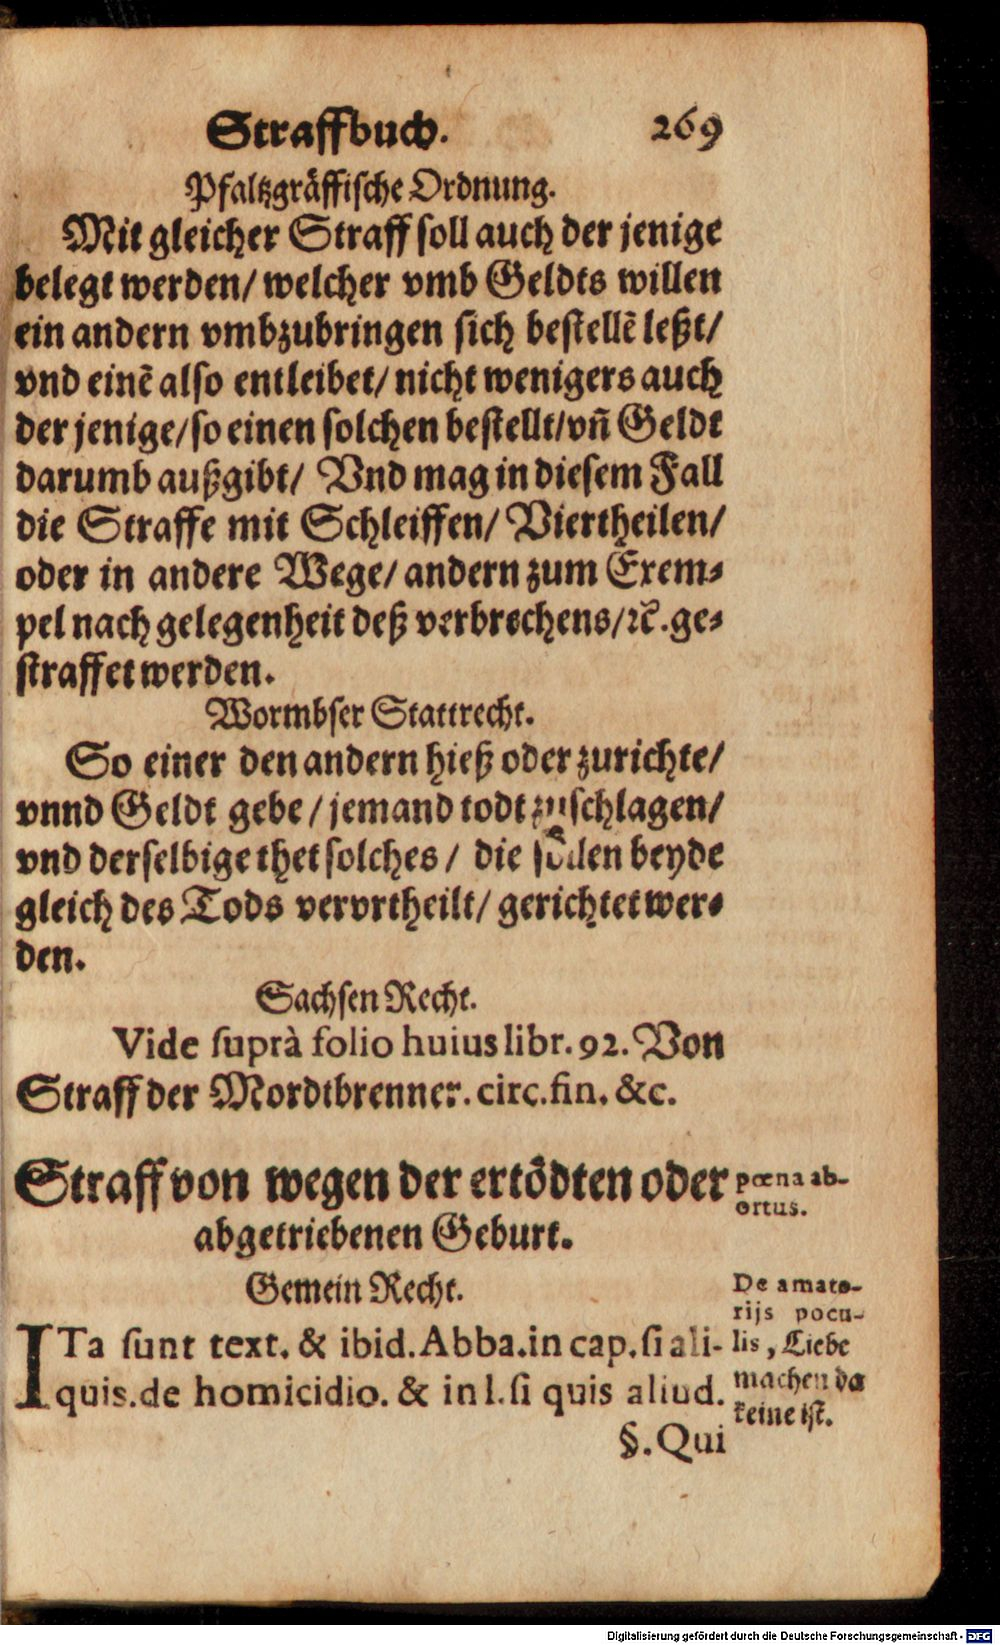 Straffbuch. 269
Pfaltzgräffische Ordnung.
Mit gleicher Straff soll auch der jenige
belegt werden/ welcher vmb Geldts willen
ein andern vmbzubringen sich bestellē leßt/
vnd einē also entleibet/ nicht wenigers auch
der jenige/ so einen solchen bestellt/ vñ Geldt
darumb außgibt/ Vnd mag in diesem Fall
die Straffe mit Schleiffen/ Viertheilen/
oder in andere Wege/ andern zum Exem-
pel nach gelegenheit deß verbrechens/ ꝛc. ge-
straffet werden.
Wormbser Stattrecht.
So einer den andern hieß oder zurichte/
vnnd Geldt gebe / jemand todt zuschlagen/
vnd derselbige thet solches / die söllen beyde
gleich des Tods vervrtheilt/ gerichtet wer-
den.
Sachsen Recht.
Vide suprà folio huius libr. 92. Von
Straff der Mordtbrenner. circ. fin. &c.
Straff von wegen der ertödten oder
abgetriebenen Geburt.
pœna ab-
ortus.
Gemein Recht.
ITa sunt text. & ibid. Abba. in cap. si ali-
quis. de homicidio. & in l. si quis aliud.
§. Qui
De amato-
rijs pocu-
lis, Liebe
machen da
keine ist.
Digitalisierung gefördert durch die Deutsche Forschungsgemeinschaft - DFG